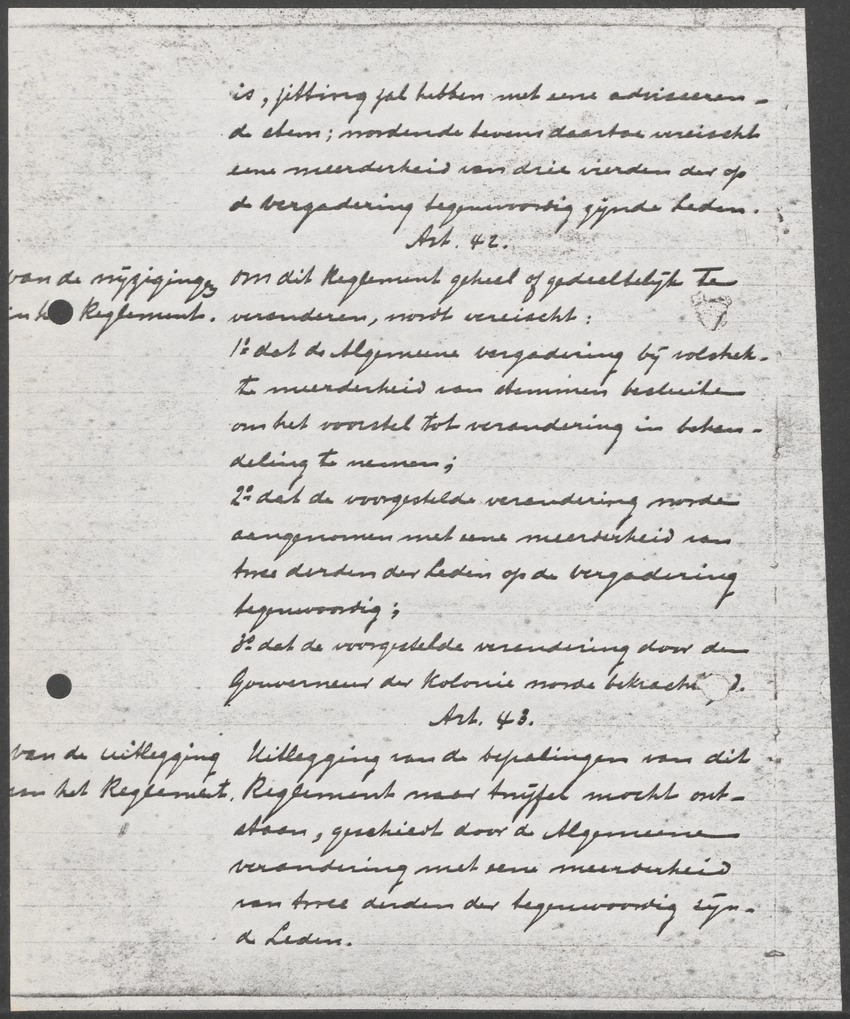 is, zitting zal hebben met eene adviseeren-
de stem; wordende tevens daartoe vereischt
eene meerderheid van drie vierden der op
de vergadering tegenwoordig zijnde Leden.
Art. 42.
van de wijzigingen
in het Reglement.
om dit Reglement geheel of gedeeltelijk te
veranderen, wordt vereischt:
1º dat de Algemeene vergadering bij volstrek-
te meerderheid van stemmen besluite
om het voorstel tot verandering in behan-
deling te nemen;
2º dat de voorgestelde verandering worde
aangenomen met eene meerderheid van
twee derden der Leden op de vergadering
tegenwoordig;
3º dat de voorgestelde verandering door den
Gouverneur der Kolonie worde
Art. 43.
van de uitlegging
van het Reglement.
Uitlegging van de bepalingen van dit
Reglement waar twijfel mocht ont-
staan, geschiedt door de Algemeene
verandering met eene meerderheid
van twee derden der tegenwoordig zijn-
de Leden.